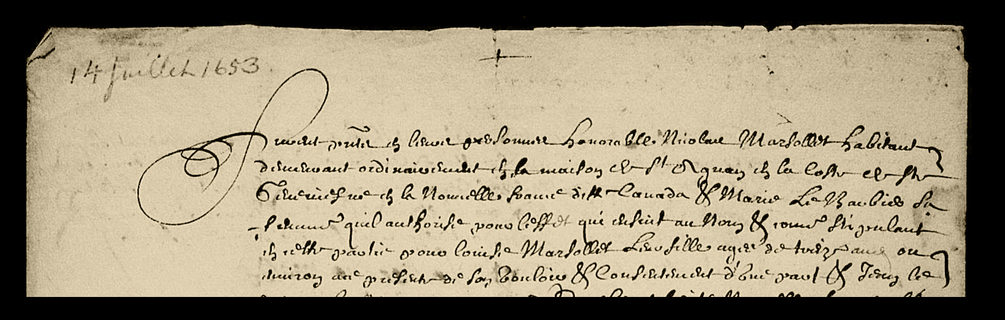 14 juillet 1653
Furent pnts en leurs personnes honorable Nicolas Marsollet habitant
demeurant ordinairement en sa maison de St Aignan en la Coste de Ste
Geneviefve en la Nouvelle france ditte Canada & Marie Le Barbier sa
femme quil authorise pour leffet qui ensuit au Nom & come stipulant
en cette partie pour louise Marsollet Leur fille agée de treize ans ou
environ ace presente de son voulloir & Consentement d'une part & Jean le